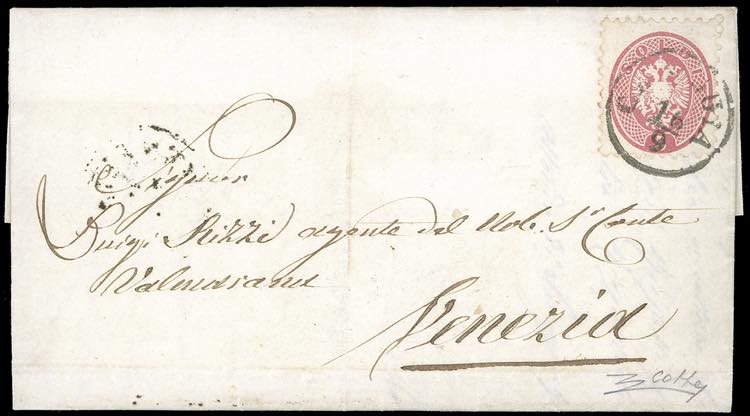 Signor
Luigi Rizzi agente del Nob. Sr Conte
Valmarana
Venezia
16
9